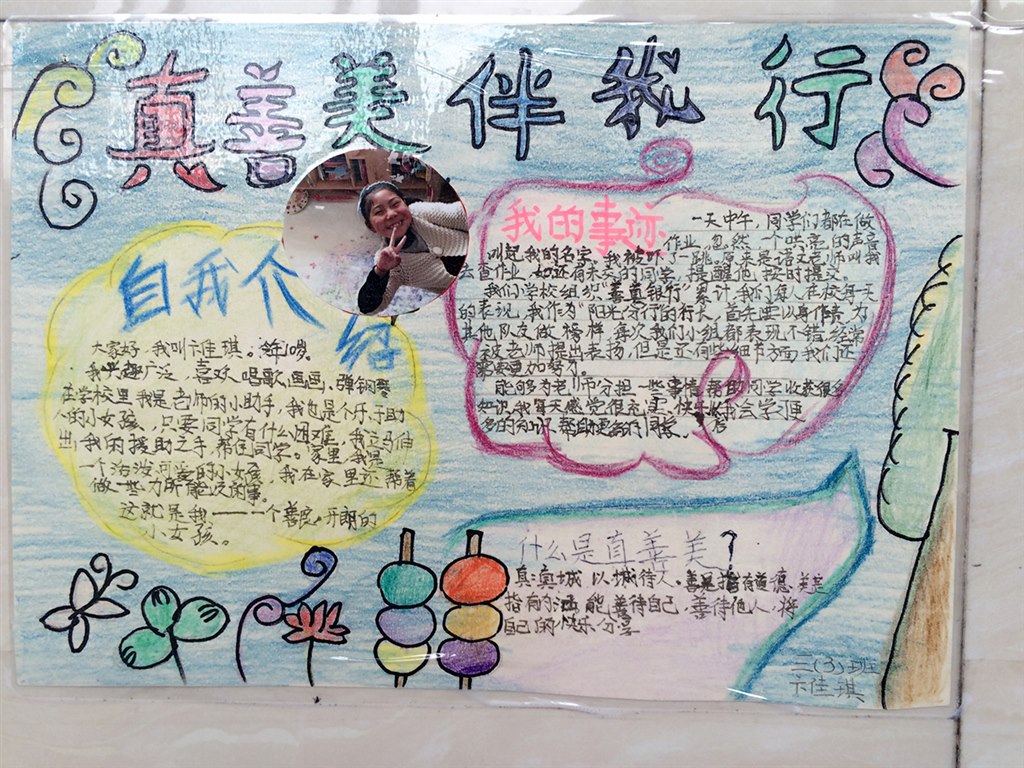 真善美伴我行
自我介绍
大家好,我叫卞佳琪。
我兴趣广泛,喜欢唱歌画画,弹钢琴
在学校里我是老师的小助手,我也是个乐于助
人的小女孩,只要同学有什么困难,我立马伸
出我的援助之手,帮住同学。家里,我是
一个活泼可爱的小女孩,我在家里还帮着
做一些力所能及的事。
这就是我——一个善良,开朗的
小女孩。
我的事迹
一天中午,同学们都在做
作业,忽然一个洪亮的声音
叫起我的名字,我被吓了一跳,原来是语文老师叫我
去查作业,如还有未交的同学,提醒他,按时提交。
我们学校组织“善真银行”累计,我们每人在校每天
的表现,我作为“阳光分行”的行长,首先要以身作责,为
其他队友做榜样,每次我们小组都表现不错,经常
被老师提出表扬,但是还有些细节方面,我们还
需要更加努力。
能够为老师分担一些事情,帮助同学收获很多
知识,我每天感觉很充实,快乐,我会学习更
多的知识,帮助更多的同学。
什么是真善美?
真:真诚,以诚待人。善是指有道德,美是
指有的 能,善待自己,善待他人,将
自己的快乐分享
二(3)班
卞佳琪